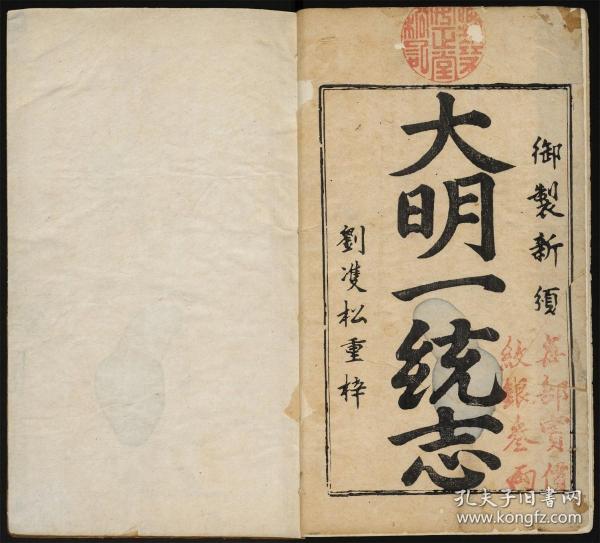 御製新頒
大明一統志
劉雙松重梓
每部實價
紋銀叁両
孔夫子旧书网
www.kongfz.com